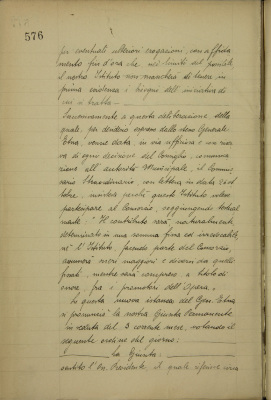 576
per eventuali ulteriori erogazioni, con affida
mento fin d'ora che, nei limiti del possibile
il nostro Istituto non mancherà di tenere in
prima evidenza i bisogni dell'iniziativa di
cui si tratta.—
Successivamente a questa deliberazione, della
quale, per desiderio espresso dallo stesso Ignorale
Etna, venne data, in via ufficiosa e con riser
va di ogni decisione del Consiglio, comunica
zione all'autorità Municipale, il Commis
sario Straordinario, con lettera in data 26 ot
tobre, insisteva perchè questo Istituto voglia
partecipare al Consorzio, soggiungendo testual
mente: "Il contributo sarà naturalmente
determinato in una somma fissa ed irrevocabile,
nè l'Istituto, facendo parte del Consorzio,
assumerà oneri maggiori e diversi da quelli
fissati, mentre sarà compreso, a titolo di
onore, fra i promotori dell'Opera."
Su questa nuova istanza del Etna
si pronunciò la nostra Giunta Permanente
in seduta del 3 corrente mese, votando il
seguente ordine del giorno:
La Giunta:
sentito l'On. Presidente, il quale riferisce una